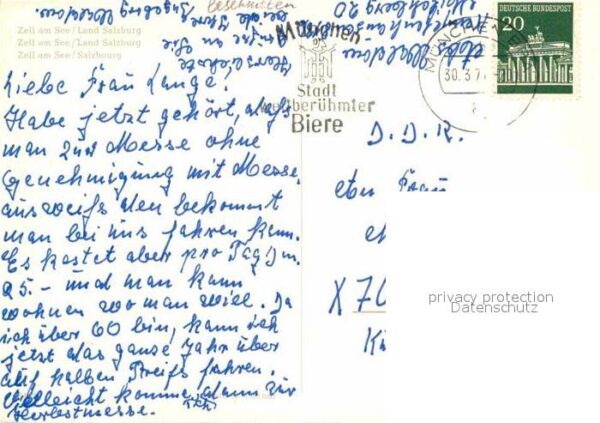 Zell am See/Land Salzburg
Zell am See/Land Salzburg
Zell am See/Salzbourg
Liebe Frau Lange.
Habe jetzt gehört, dass
man zur Messe ohne
Genehmigung mit Messe
ausweiss den bekommt
man bei uns fahren kann.
Es kostet aber pro Tag
25.- und man kann
wohnen wo man will. Da
ich über 60 bin, kann ich
jetzt das ganze Jahr über
auf halben Preiss fahren.
Vielleicht komme ich dann zur
Herbstmesse.
Herzlichste
Grüsse an Sie
München
Stadt
weltberühmter
Biere
MÜNCHEN
30.3.7
DEUTSCHE BUNDESPOST
20
D.D.R.
Frau
X70
privacy protection
Datenschutz